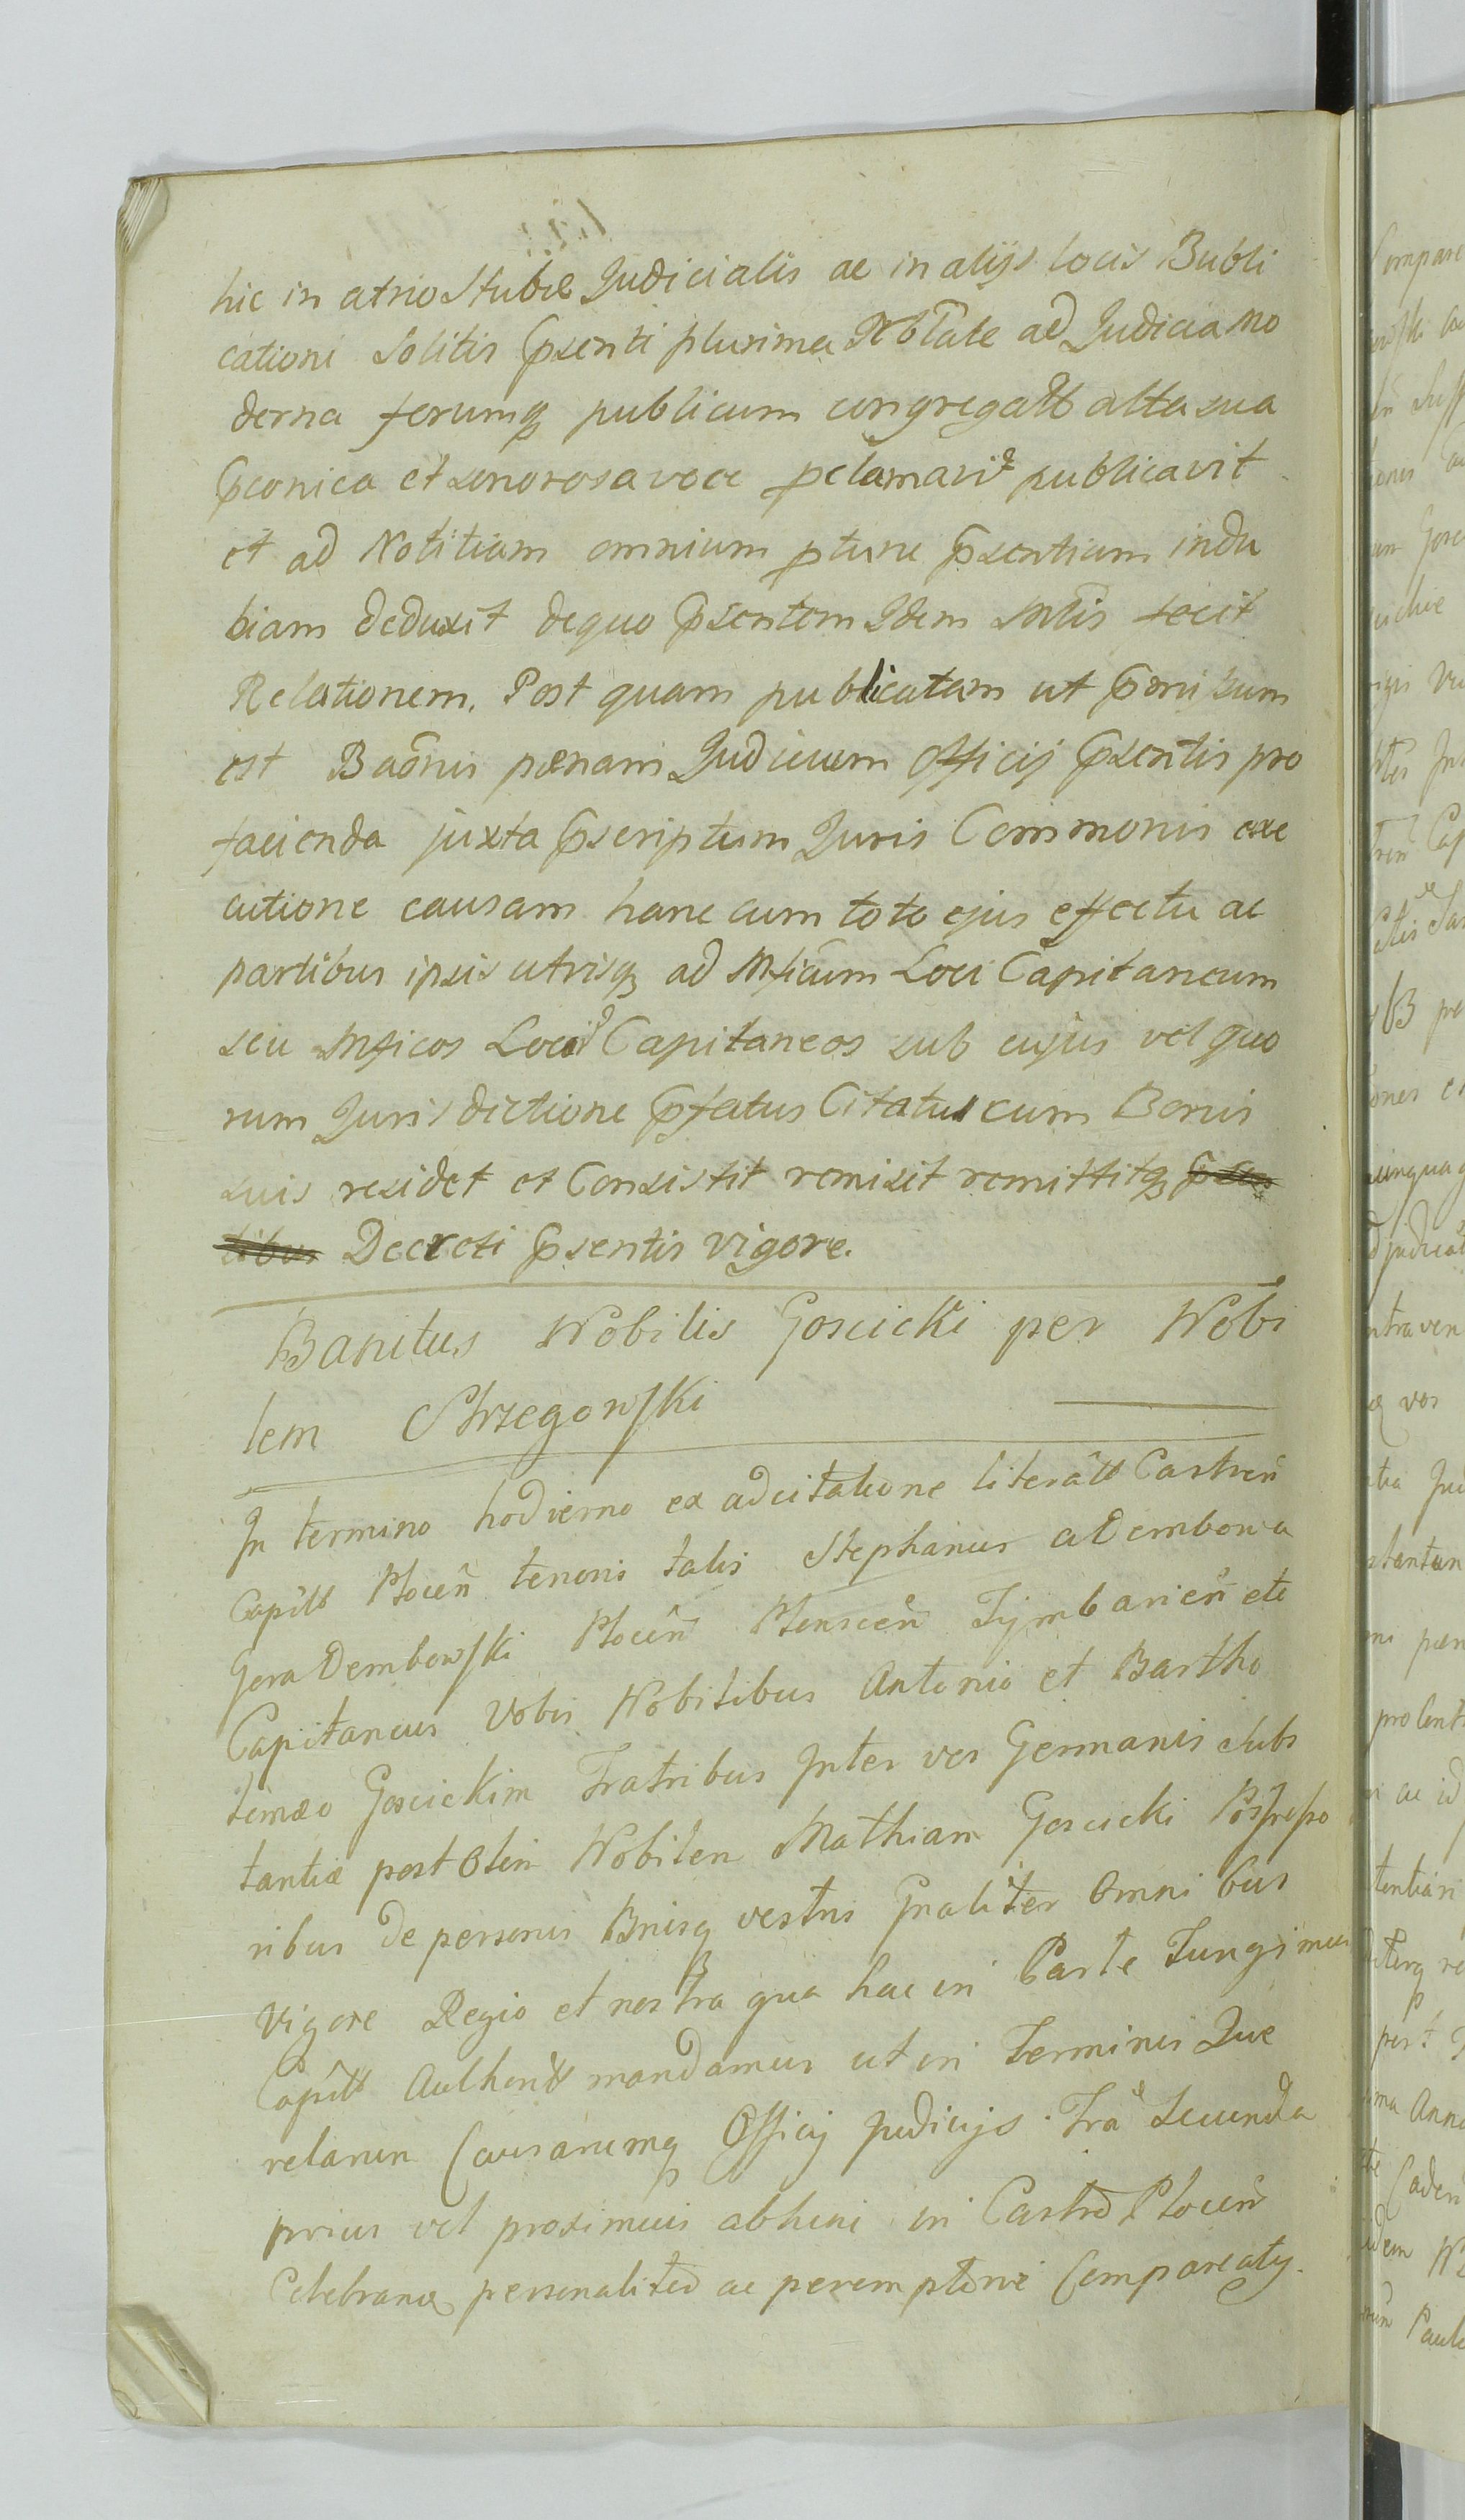 hic in atrio Stubæ Judicialis ac in alijs locis Bubli
cationi Solitis Psenti plurima Nobtate ad Judicia mo
derna forumq publicum congregatt alta sua
Pconica et sonorosa voce pclamavit publicavit
et ad Notitiam omnium ptunc Psentium indu
biam deduxit de quo Psentem Idem Mtis fecit
Relationem. Post quam publicatam ut Pmissum
est Baõnis pænam Judicium Officij Psentis pro
facienda juxta Pscriptum Juris Commonis exe
cutione causam hanc cum toto ejus effectu ac
partibus ipsis utrisq ad Mficum Loci Capitaneum
seu Mficos Locod Capitaneos sub cujus vel quo
rum Jurisdictione Pfatus Citatus cum Bonis
suis residet et Consistit remisit remittitq Psen
tibus Decreti Psentis vigore.
Banitus Nobilis Goscicki per Nobi
lem Strzegowski
In termino hodierno ex adcitatione literatt Castren
Capitt Plocen tenoris talis Stephanus a Dembowa
Gora Dembowski Plocen Plonscen Tymbarien etc
Capitaneus Vobis Nobilibus Antonio et Bartho
lemæo Goscickim Fratribus Inter vos Germanis Subs
tantiæ post Olim Nobilem Mathiam Goscicki Possesso
ribus de personis Bnisq vestris Gnaliter Omnibus
vigore Regio et nostra qua hac in Parte Fungimur
Capitt Authoritt mandamus ut in Terminis Que
relarum Causarumq Officij Judicijs Fra Secunda
prius vel proximius abhinc in Castro Plocen
Celebran personaliter ac peremptorie Compareatis.